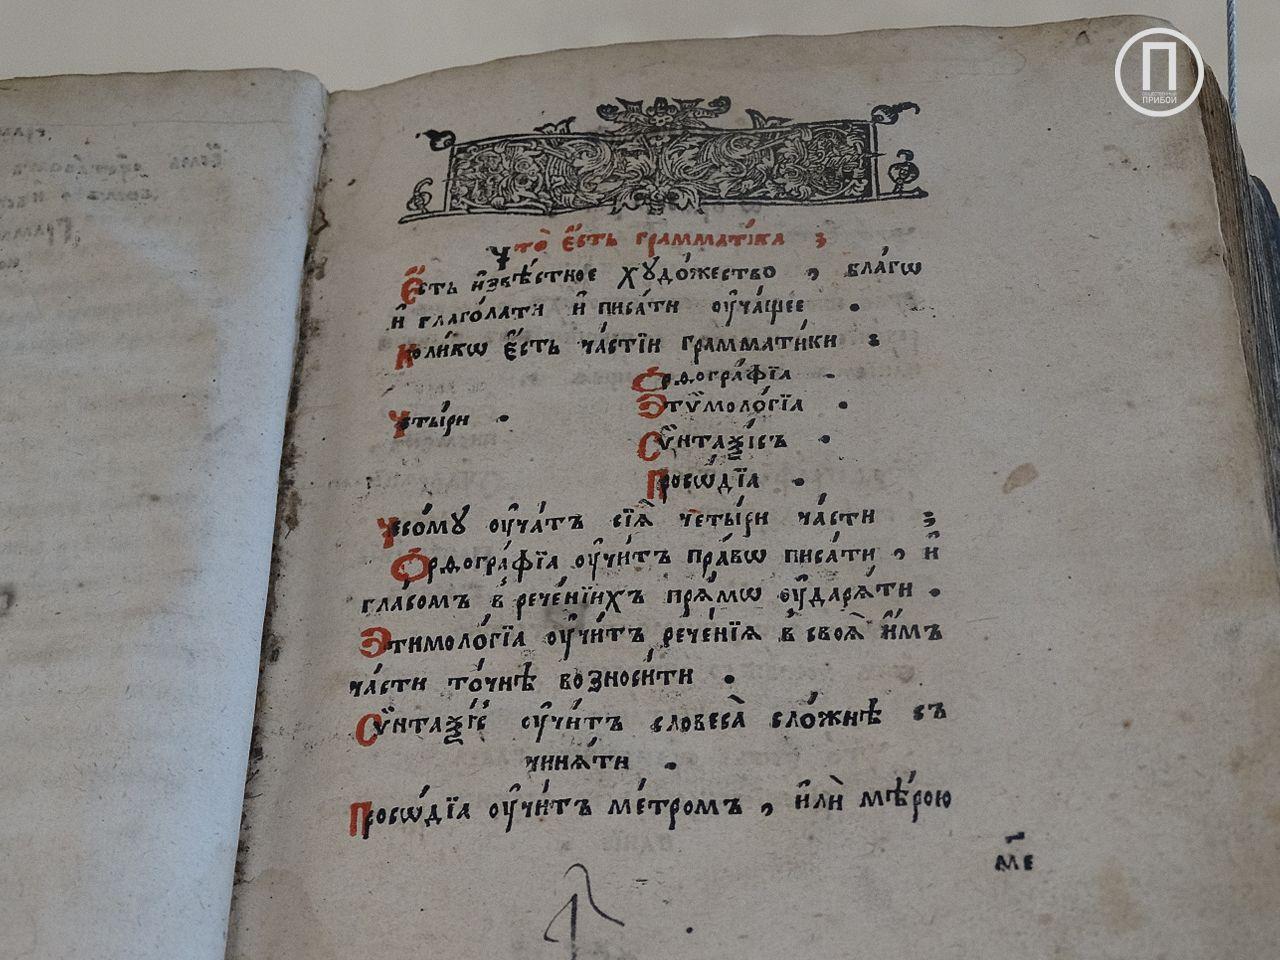 Что̀ є҆́сть грамматі́ка ;
Є҆́сть и҆звѣ́стное хꙋдо́жество , бла́гѡ
и҆ глаго́лати и҆ писа́ти ᲂу҆ча́щее .
Коли́кѡ є҆́сть ча́стїи грамма́ти́ки ;
Ѻ҆рѳогра́фїа .
Четы́ри . Э҆тѷмоло́гїа .
Сѷ́нтаѯїсъ .
Просѡ́дїа .
Чесо́мꙋ ᲂу҆ча́тъ сїѧ̑ четы́ри ча́сти ;
Ѻ҆рѳогра́фїа ᲂу҆чи́тъ пра́вѡ писа́ти , и҆
гла́сомъ в̾ рече́нїихъ прѧ́мѡ ᲂу҆дарѧ́ти .
Э҆тимоло́гїа ᲂу҆чи́тъ рече́нїѧ в̾ своѧ̑ и҆̀мъ
ча́сти то́чнѣ возноси́ти .
Сѷ́нтаѯїс ᲂу҆чи́тъ словеса̀ сло́жнѣ съ
чинѧ́ти .
Просѡ́дїа ᲂу҆чи́тъ ме́тромъ , и҆лѝ мѣ́рою
ПРИБОЙ